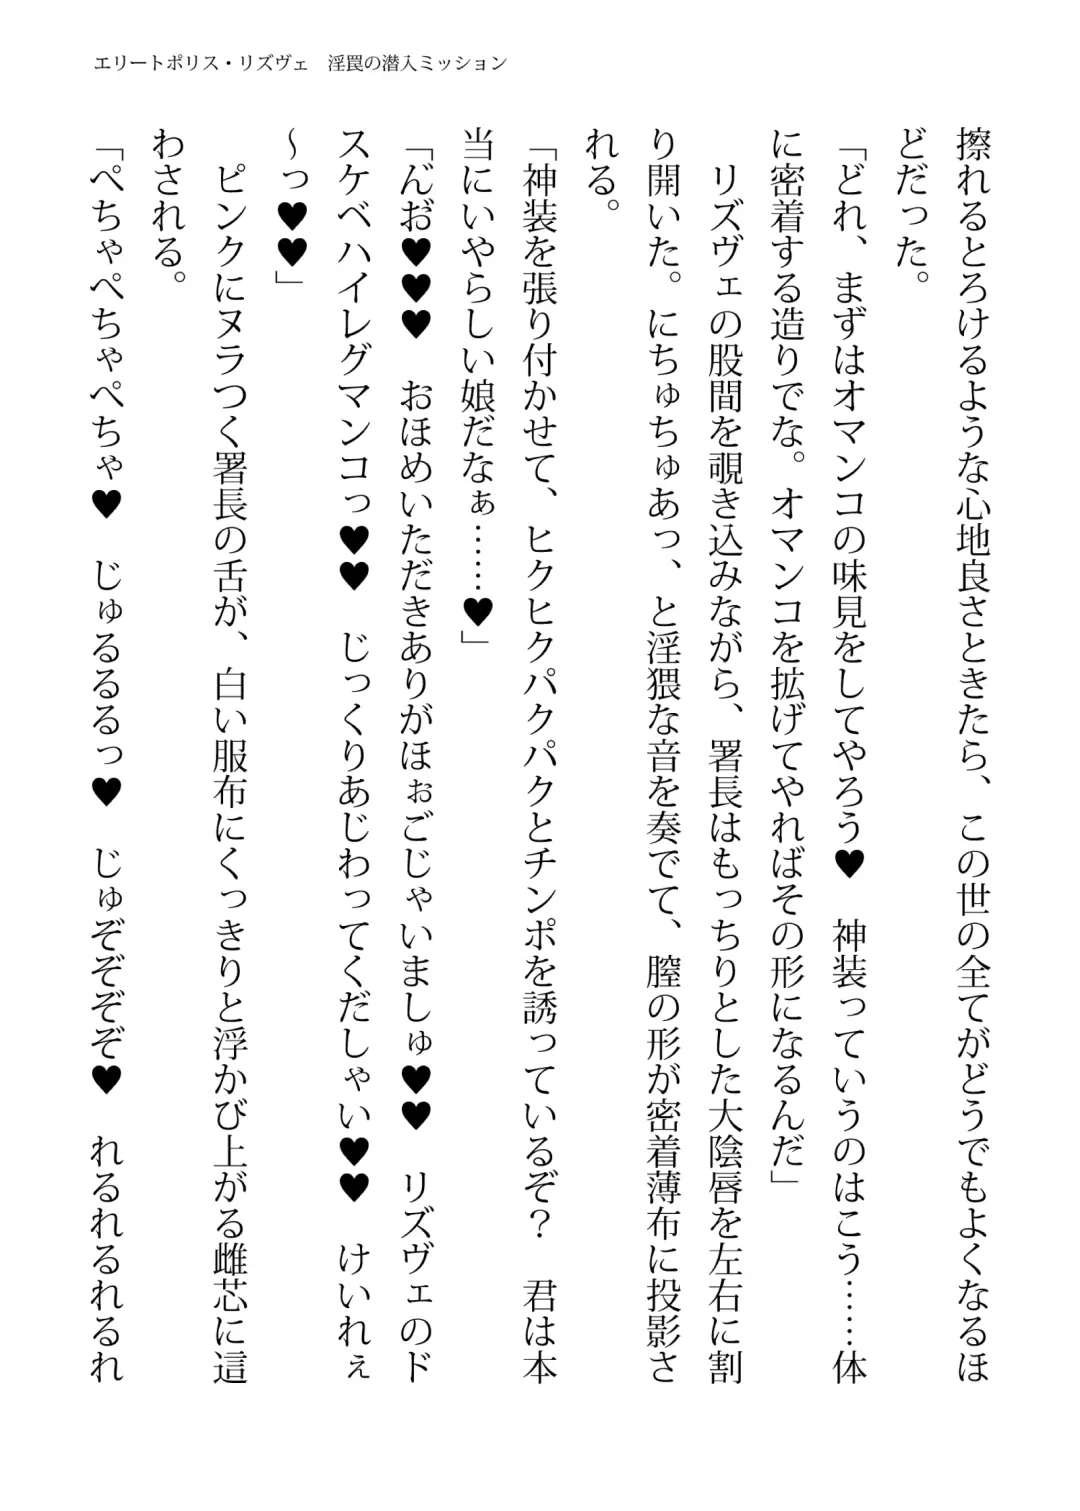 エリートポリス・リズヴェ　淫罠の潜入ミッション
擦れるとろけるような心地良さときたら、この世の全てがどうでもよくなるほ
どだった。
「どれ、まずはオマンコの味見をしてやろう♥　神装っていうのはこう……体
に密着する造りでな。オマンコを拡げてやればその形になるんだ」
　リズヴェの股間を覗き込みながら、署長はもっちりとした大陰唇を左右に割
り開いた。にちゅちゅあっ、と淫猥な音を奏でて、膣の形が密着薄布に投影さ
れる。
「神装を張り付かせて、ヒクヒクパクパクとチンポを誘っているぞ？　君は本
当にいやらしい娘だなぁ……♥」
「ん゙お゙♥♥♥　おほめいただきありがほぉごじゃいましゅ♥♥　リズヴェのド
スケベハイレグマンコっ♥♥　じっくりあじわってくだしゃい♥♥　けいれぇ
～っ♥♥」
　ピンクにヌラつく署長の舌が、白い服布にくっきりと浮かび上がる雌芯に這
わされる。
「ぺちゃぺちゃぺちゃ♥　じゅるるるっ♥　じゅぞぞぞぞ♥　れるれるれるれ